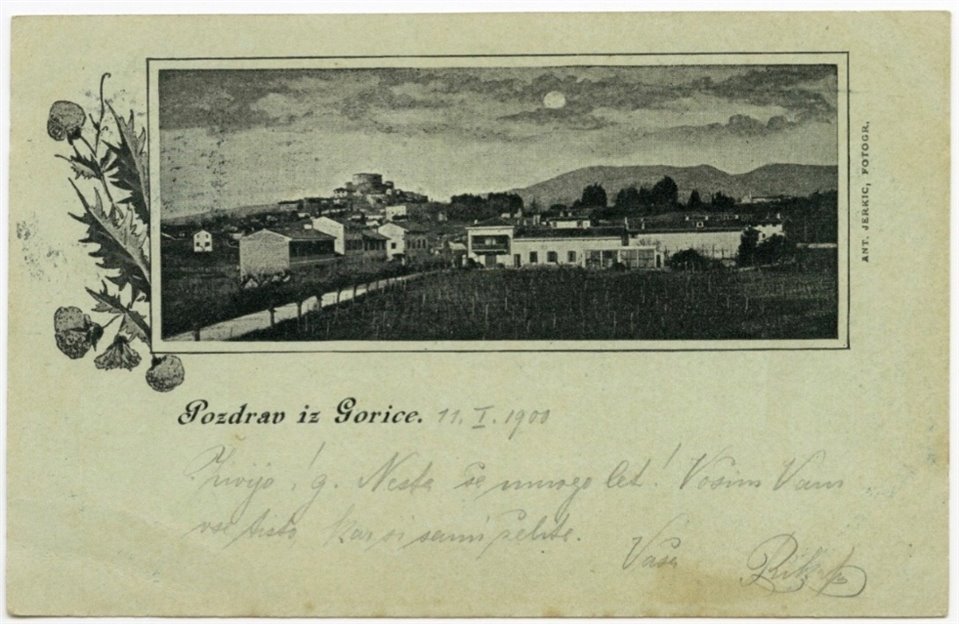 ANT. JERKIC, FOTOGR.
Pozdrav iz Gorice. 11. I. 1900
Živijo! g. Neste še mnogo let! Vosim Vam
vse tisto, kar si sami želite.
Vaša